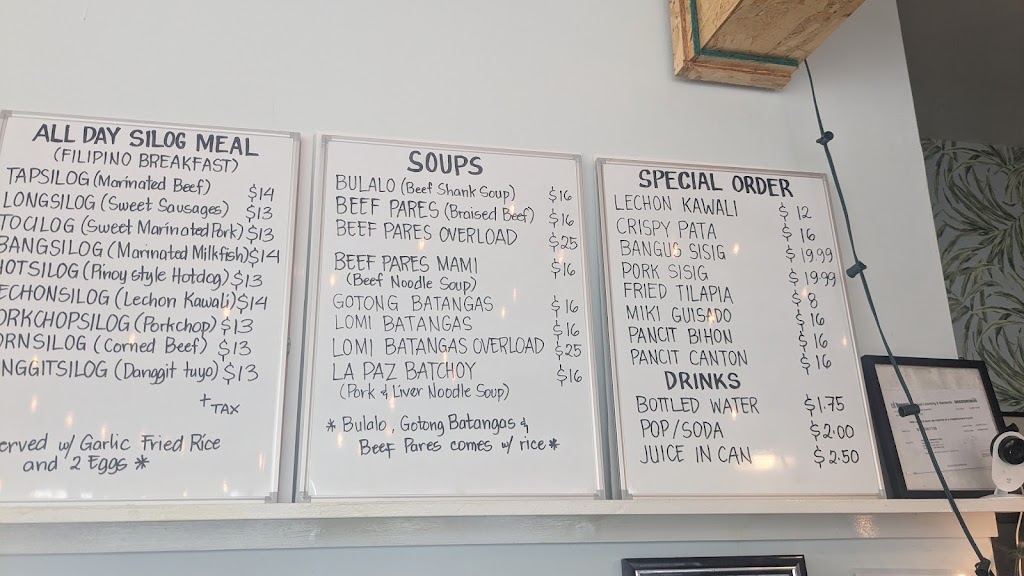 ALL DAY SILOG MEAL
(FILIPINO BREAKFAST)
TAPSILOG (Marinated Beef) $14
LONGSILOG (Sweet Sausages) $13
TOCILOG (Sweet Marinated Pork) $13
BANGSILOG (Marinated Milkfish) $14
HOTSILOG (Pinoy style Hotdog) $13
ECHONSILOG (Lechon Kawali) $14
ORKCHOPSILOG (Porkchop) $13
ORNSILOG (Corned Beef) $13
NGGITSILOG (Danggit tuyo) $13
+ TAX
erved w/ Garlic Fried Rice
and 2 Eggs *
SOUPS
BULALO (Beef Shank Soup) $16
BEEF PARES (Braised Beef) $16
BEEF PARES OVERLOAD $25
BEEF PARES MAMI $16
(Beef Noodle Soup)
GOTONG BATANGAS $16
LOMI BATANGAS $16
LOMI BATANGAS OVERLOAD $25
LA PAZ BATCHOY $16
(Pork & Liver Noodle Soup)
* Bulalo, Gotong Batangas &
Beef Pares comes w/ rice *
SPECIAL ORDER
LECHON KAWALI $ 12
CRISPY PATA $ 16
BANGUS SISIG $ 19.99
PORK SISIG $ 19.99
FRIED TILAPIA $ 8
MIKI GUISADO $ 16
PANCIT BIHON $ 16
PANCIT CANTON $ 16
DRINKS
BOTTLED WATER $1.75
POP/SODA $2.00
JUICE IN CAN $2.50